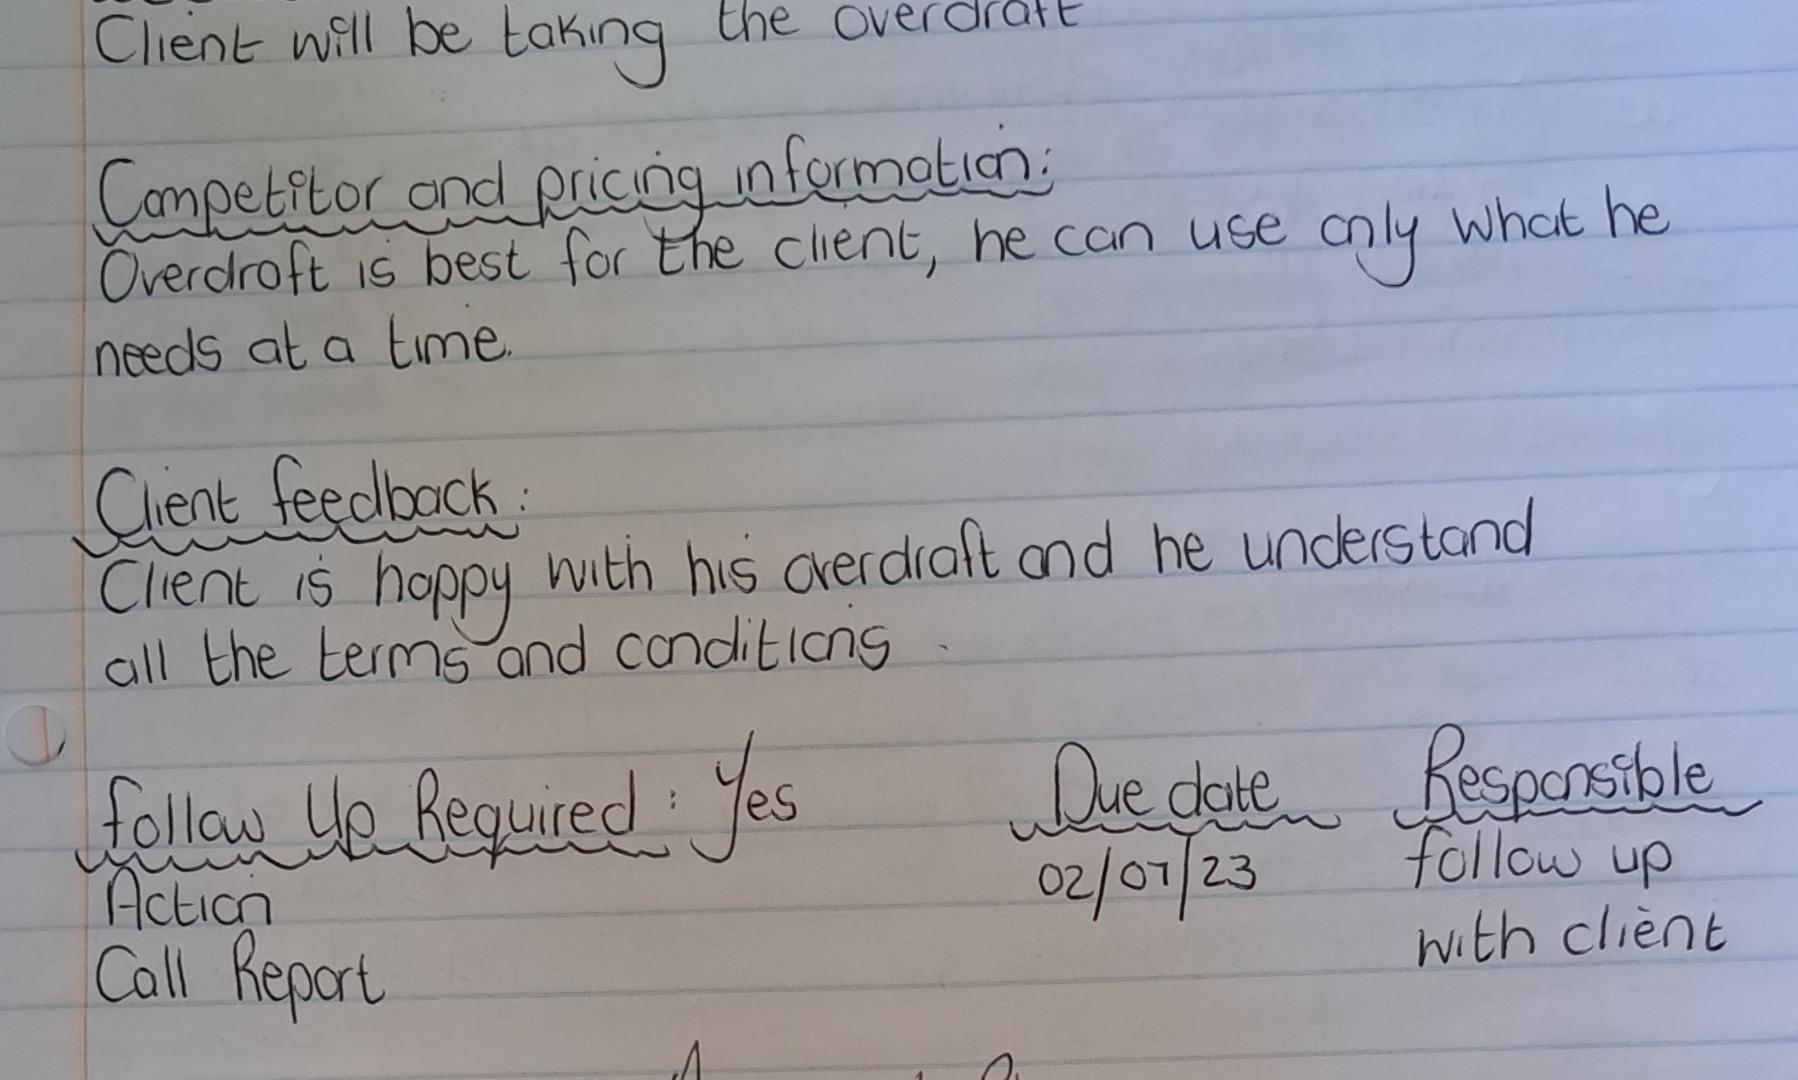 Client will be taking the overdraft
Competitor and pricing information:
Overdraft is best for the client, he can use only what he
needs at a time.
Client feedback:
Client is happy with his overdraft and he understand
all the terms and conditions.
Follow Up Required: Yes Due date Responsible
Action 02/07/23 follow up
Call Report with client